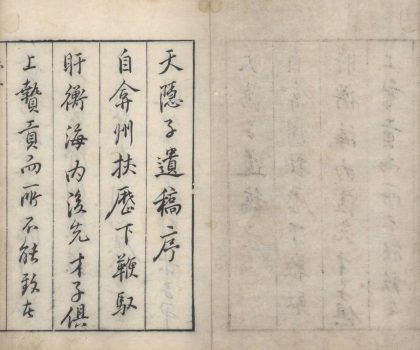 天隱子遺稿序
自弇州扶歷下鞭馭
盱衡海內後先才子俱
上贄貢而所不能致在